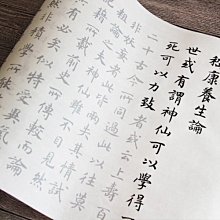 嵇康養生論
世或有謂神仙可以學得不
死可以力致者或云上壽百
二十古今所同過此以往莫
非妖妄者此皆兩失其情試
粗論之夫神仙雖不目見然
所載前史所傳較而論
有必矣似特受異氣